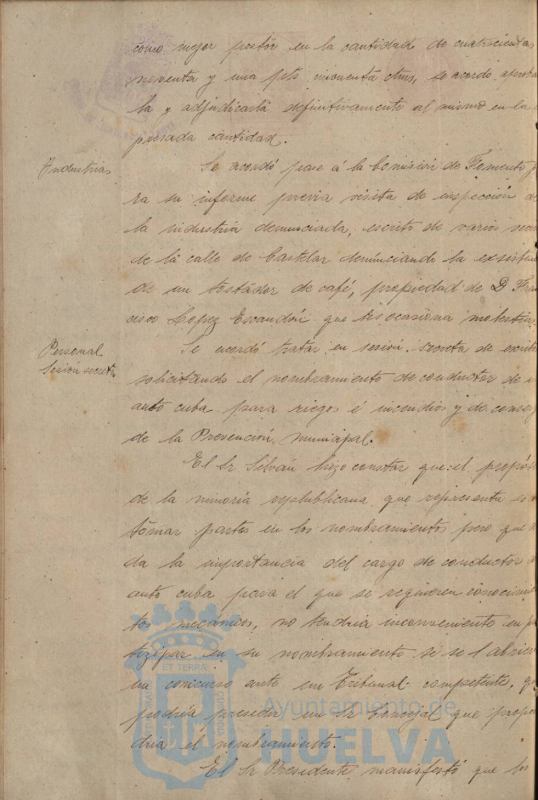 como mejor postor en la cantidad de cuatrocientas
noventa y una pts. cincuenta ctms, se acordó aproba
la y adjudicarla definitivamente al mismo en la
presada cantidad.
Industrias
Se acordó pase á la Comisión de Fomento p
ra su informe previa visita de inspección de
la industria denunciada, escrito de varios veci
de la calle de Castelar denunciando la existen
de un tostador de café, propiedad de D. Fran
cisco Lopez Escandón que les ocasiona molestias.
Personal
Sesion secreta
Se acordó tratar en sesión secreta de escrito
solicitando el nombramiento de conductor de
auto cuba para riegos é incendios y de conserj
de la Prevención municipal.
El Sr. Silván hizo constar que el propósit
de la minoría republicana que representa es
tomar parte en los nombramientos pero que
da la importancia del cargo de conductor d
auto cuba para el que se requieren conocimien
tos mecánicos, no tendría inconveniente en p
ticipar en su nombramiento si se l abriera
un concurso ante un Tribunal competente, q
podría presidir un Sr. Concejal que propon
dría el nombramiento.
El Sr. Presidente manifestó que los
Ayuntamiento de
HUELVA